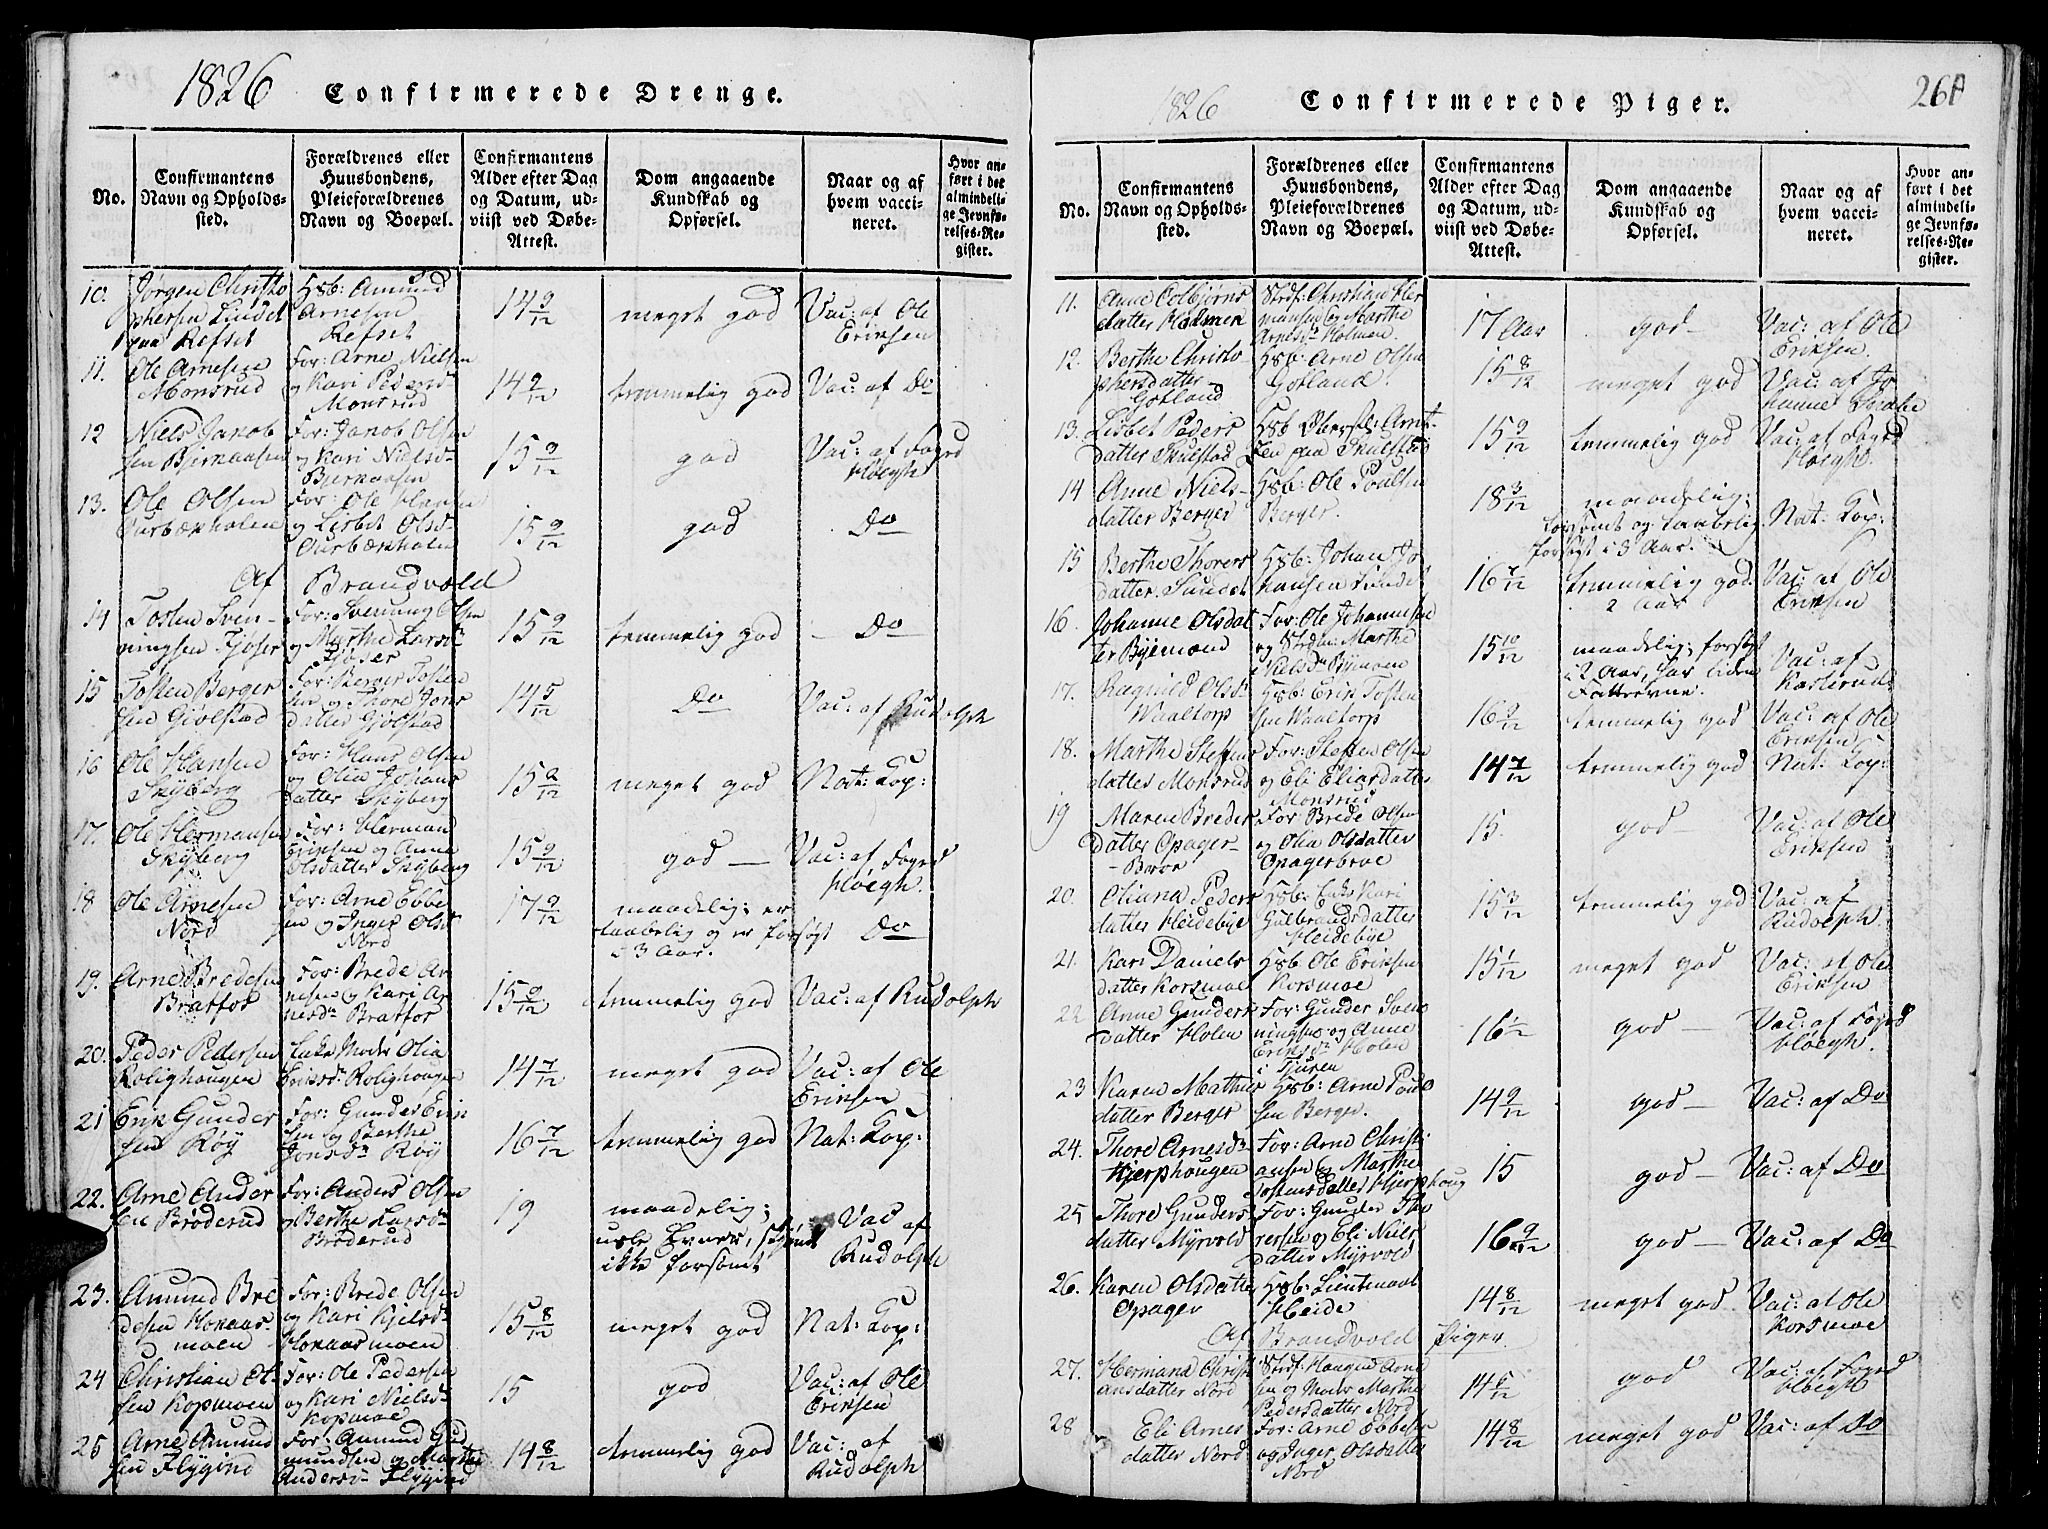 1826 Confirmerede Drenge.
No.
Confirmantens
Navn og Opholds-
sted.
Forældrenes eller
Huusbondens,
Pleieforældrenes
Navn og Boepæl.
Confirmantens
Alder efter Dag
og Datum, ud-
viist ved Døbe-
Attest.
Dom angaaende
Kundskab og
Opførsel.
Naar og af
hvem vacci-
neret.
Hvor an-
ført i det
almindeli-
ge Jevnfø-
relses-Re-
gister.
10. Jørgen Christo
phersen Lindet
paa Refset
Hsb: Amund
Arnesen
Refset
14 9/12
meget god
Vac: af Ole
Eriksen
11. Ole Arnesen
Monsrud
For: Arne Nielsen
og Kari Pedersd
Monsrud
14 9/12
temmelig god
Vac: af Do
12 Niels Jacob
sen Bjernaasen
For: Jacob Olsen
og Kari Nielsd
Bjernaasen
15 9/12
god
Vac: af Fogd
Høegh
13. Ole Olsen
Ourbækholen
For: Ole Hansen
og Lisbet Olsd
Ourbækholen
15 9/12
god
Do
Af Brandvold
14 Tosten Sven-
ningsen Tjøser
For: Svenning Olsen
og Marthe Larsd
Tjøser
15 9/12
temmelig god
Do
15 Tosten Berger
sen Gjølstad
For: Berger Tosten
sen og Thore Jons
datter Gjølstad
14 5/12
Do
Vac: af Rudolph
16 Ole Hansen
Skyberg
For: Hans Olsen
og Olia Johans
datter Skyberg
15 9/12
meget god
Nat: Kop:
17. Ole Hermansen
Skyberg
For: Herman
Eriksen og Anne
Olsdatter Skyberg
15 9/12
god
Vac: af Fogd
Høegh.
18 Ole Arnesen
Nord
For: Arne Ebbe
sen og Inger Olsd
Nord
17 9/12
maadelig; er
taabelig og er forsøgt
i 3 Aar.
Do
19. Arne Bredesen
Bratfos
For: Brede Ar
nesen og Kari Ar
nesdr Bratfos
15 9/12
temmelig god
Vac: af Rudolph
20. Peder Pedersen
Rolighougen
Enke Moder Olia
Eriksd. Rolighougen
14 7/12
meget god
Vac: af Ole
Eriksen
21 Erik Gunder
sen Røy
For: Gunder Erik
sen og Berthe
Jonsdr Røy
16 7/12
temmelig god
Nat: Kop:
22. Arne Ander
sen Brøderud
For: Anders Olsen
og Berthe Larsdr
Brøderud
19
maadelig;
usle Evner,
ikke forsømt
Vac af
Rudolph
23. Amund Bre
desen Honaas
moen
For: Brede Olsen
og Kari Kjelsd
Honaasmoen
15 8/12
meget god
Nat: Kop:
24 Christian Ol
sen Kopmoen
For: Ole Pedersen
og Kari Nielsd
Kopmoe
15
god
Vac: af Ole
Eriksen
25 Arne Amund
sen Flygind
For: Amund Gud
mundsen og Marthe
Andersd Flygind
14 8/12
temmelig god
Vac: af
Rudolph
1826 Confirmerede Piger. 261
No.
Confirmantens
Navn og Opholds-
sted.
Forældrenes eller
Huusbondens,
Pleieforældrenes
Navn og Boepæl.
Confirmantens
Alder efter Dag
og Datum, ud-
viist ved Døbe-
Attest.
Dom angaaende
Kundskab og
Opførsel.
Naar og af
hvem vacci-
neret.
Hvor an-
ført i det
almindeli-
ge Jevnfø-
relses-Re-
gister.
11. Anne Colbjørns
datter Holmen
Stedf: Christian Her
mansen og Marthe
Arnesdr Holmen
17 Aar
god
Vac: af Ole
Eriksen.
12. Berthe Christo
phersdatter
Gotland
Hsb: Arne Olsen
Gotland.
15 8/12
meget god
Vac: af Jo
hanne
13. Lisbet Peders
datter Skulstad
Hsb Oberstl: Arnt-
zen paa Skulstad
15 9/12
temmelig god
Vac: af Fogd
Høegh.
14 Anne Niels-
datter Berger
Hsb: Ole Poulsen
Berger.
18 3/12
maadelig;
forsømt og taabelig
forsøgt i 3 Aar.
Nat: Kop:
15 Berthe Thorers
datter Sundet
Hsb: Johan Jo
hansen Sundet
16 7/12
temmelig god.
2 Aar
Vac: af Ole
Eriksen
16. Johanne Olsdat
ter Byemoend
For: Ole Johannesen
og Stedm: Marthe
Nielsdr Byemoen
15 10/12
maadelig; forsøgt
i 2 Aar, har liden
Fatteevne.
Vac: af
Kasterud
17. Ragnild Olsd
Waaltorp
Hsb: Erik Tosten
sen Waaltorp
16 9/12
temmelig god
Vac: af Ole
Eriksen
18. Marthe Steffens
datter Monsrud
For: Steffen Olsen
og Eli Eliasdatter
Monsrud
14 7/12
temmelig god
Nat: Kop:
19 Maren Bredes
datter Opager-
Broe
For Brede Olsen
og Olia Olsdatter
Opagerbroe
15.
god
Vac: af Ole
Eriksen
20. Oliana Peders
datter Heidebye
Hsb: Enke Kari
Gulbrandsdatter
Heidebye
15 3/12
temmelig god
Vac: af
Rudolph.
21. Kari Daniels
datter Korsmoe
Hsb Ole Eriksen
Korsmoe
15 1/12
meget god
Vac: af Ole
Eriksen
22 Anne Gunders
datter Holen
For: Gunder Sven
ningsen og Anne
Eriksdr Holen
i Tjuren
16 1/2
god
Vac: af Fogd
Høegh.
23 Karen Mathis
datter Berger
Hsb: Arne Poul
sen Berger.
14 9/12
god
Vac: af Do
24. Thore Arnesdr
Kjerphougen
For: Arne Christi
ansen og Marthe
Tostensdatter Kjerphoug
15
god
Vac: af Do
25 Thore Gunders-
datter Myrvold
For: Gunder Tho
resen og Eli Niels
datter Myrvold
16 9/12
god
Vac: af Do
26. Karen Olsdatter
Opager
Hsb: Lieutenant
Heide
14 8/12
meget god
Vac: af Ole
Korsmoe
Af Brandvold Piger.
27. Hermana Christi
ansdatter Nord
Stedf: Haagen Arne
sen og Moder Marthe
Pedersdatter Nord
14 5/12
god
Vac: af Fogd
Høegh
28 Eli Arnes
datter Nord
For: Arne Ebbesen
og Inger Olsdatter
Nord
14 8/12
meget god
Vac: af Do